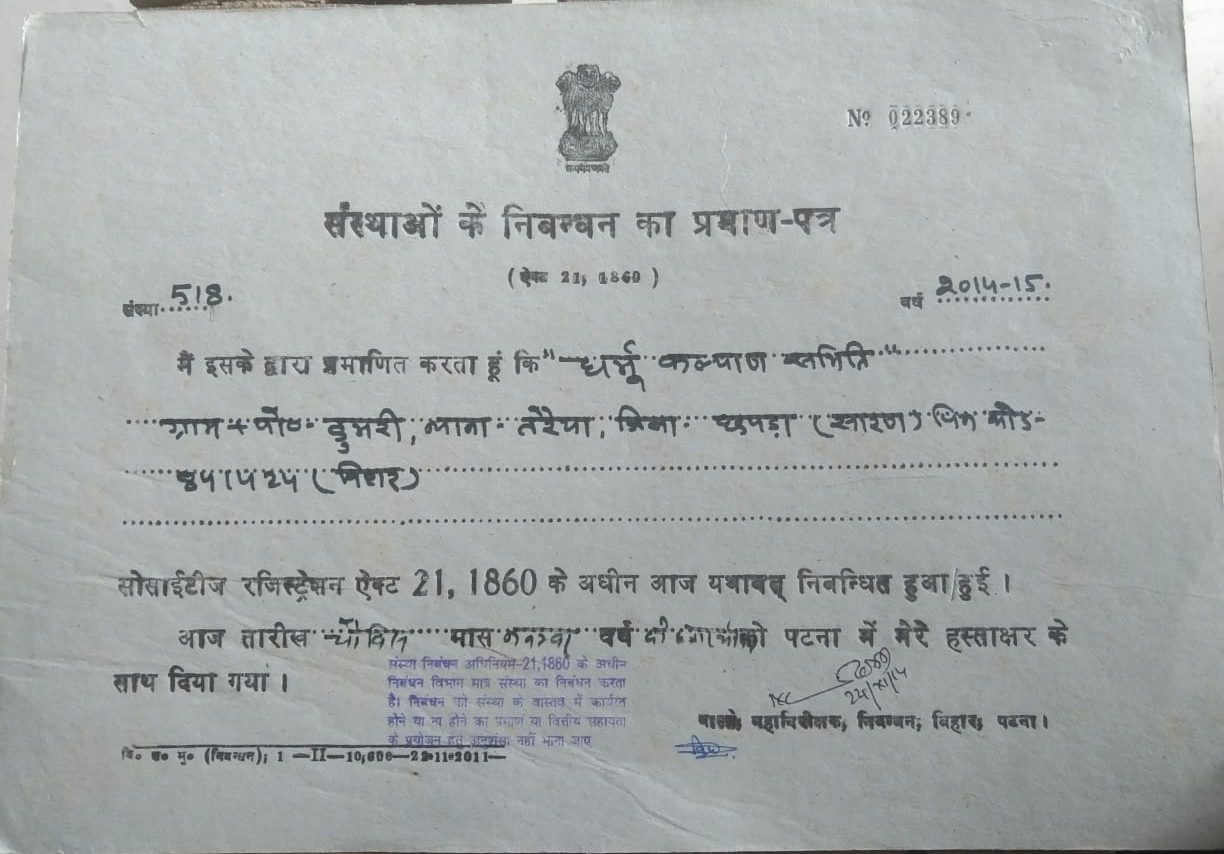 सत्यमेव जयते
Nº 022389
संस्थाओं के निबन्धन का प्रमाण-पत्र
(ऐक्ट 21, 1860)
संख्या 518. वर्ष 2014-15.
मैं इसके द्वारा प्रमाणित करता हूं कि "धर्मू कल्याण समिति"
ग्राम + पो०- डुमरी, थाना- तरैया, जिला- छपड़ा (सारण) पिन कोड-
841424 (बिहार)
सोसाईटीज रजिस्ट्रेशन ऐक्ट 21, 1860 के अधीन आज यथावत् निबन्धित हुआ/हुई ।
आज तारीख चौबिस मास नवम्बर वर्ष को पटना में मेरे हस्ताक्षर के
साथ दिया गया ।
संस्था निबंधन अधिनियम-21,1860 के अधीन
निबंधन विभाग मात्र संस्था का निबंधन करता
है। निबंधन को संस्था के वास्तव में कार्यरत
होने या ना होने का प्रमाण या वित्तीय सहायता
के प्रयोजन हेतु अनुशंसा नहीं माना जाए
24/XI/14
वास्ते, महानिरीक्षक, निबन्धन, बिहार, पटना ।
वि० स० मु० (निबन्धन), 1 —II—10,000—22-11-2011—